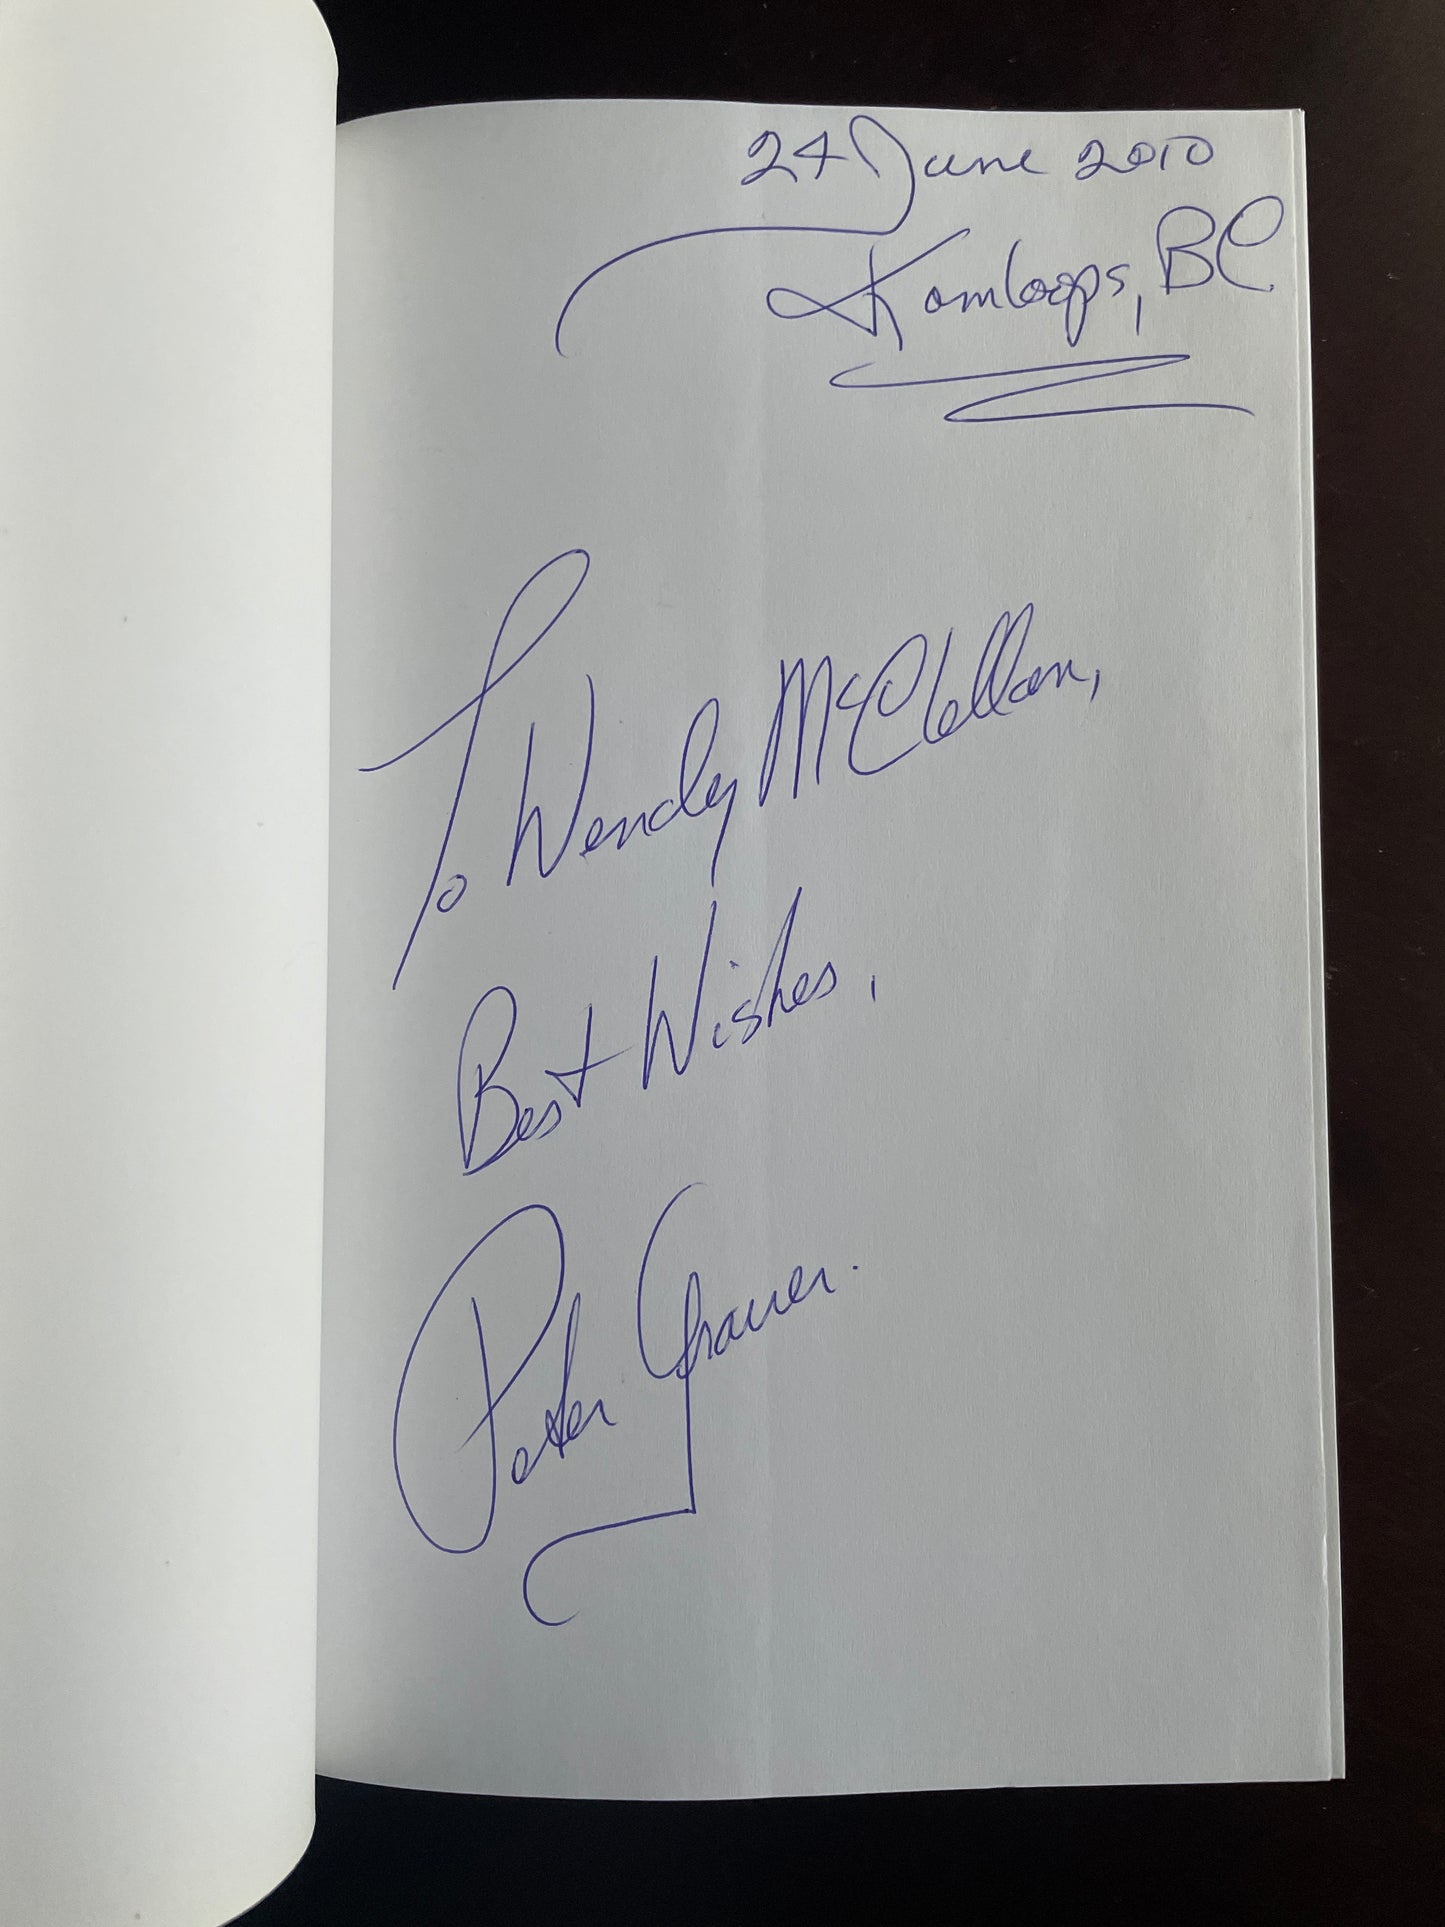 24 June 2010
Kamloops, BC
To Wendy McClellan,
Best Wishes,
Peter Grauer.